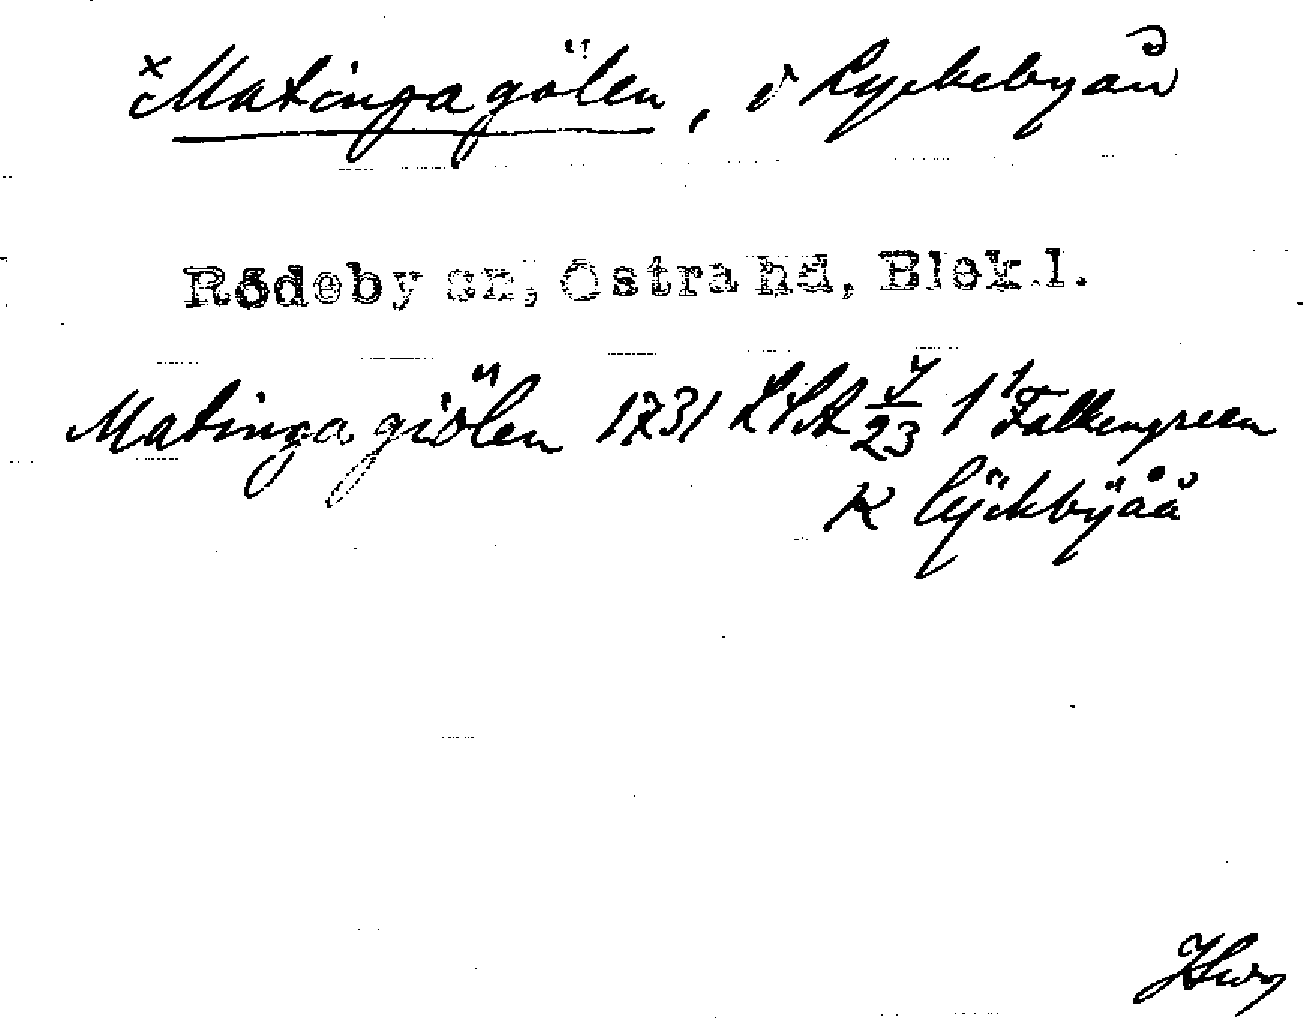 × Matingagölen, i Lyckebyån
Rödeby sn, Östra hd, Blek.l.
Matinga giölen 1731 LSA J/23 1¹ Falkengreen
K lÿckbÿåå